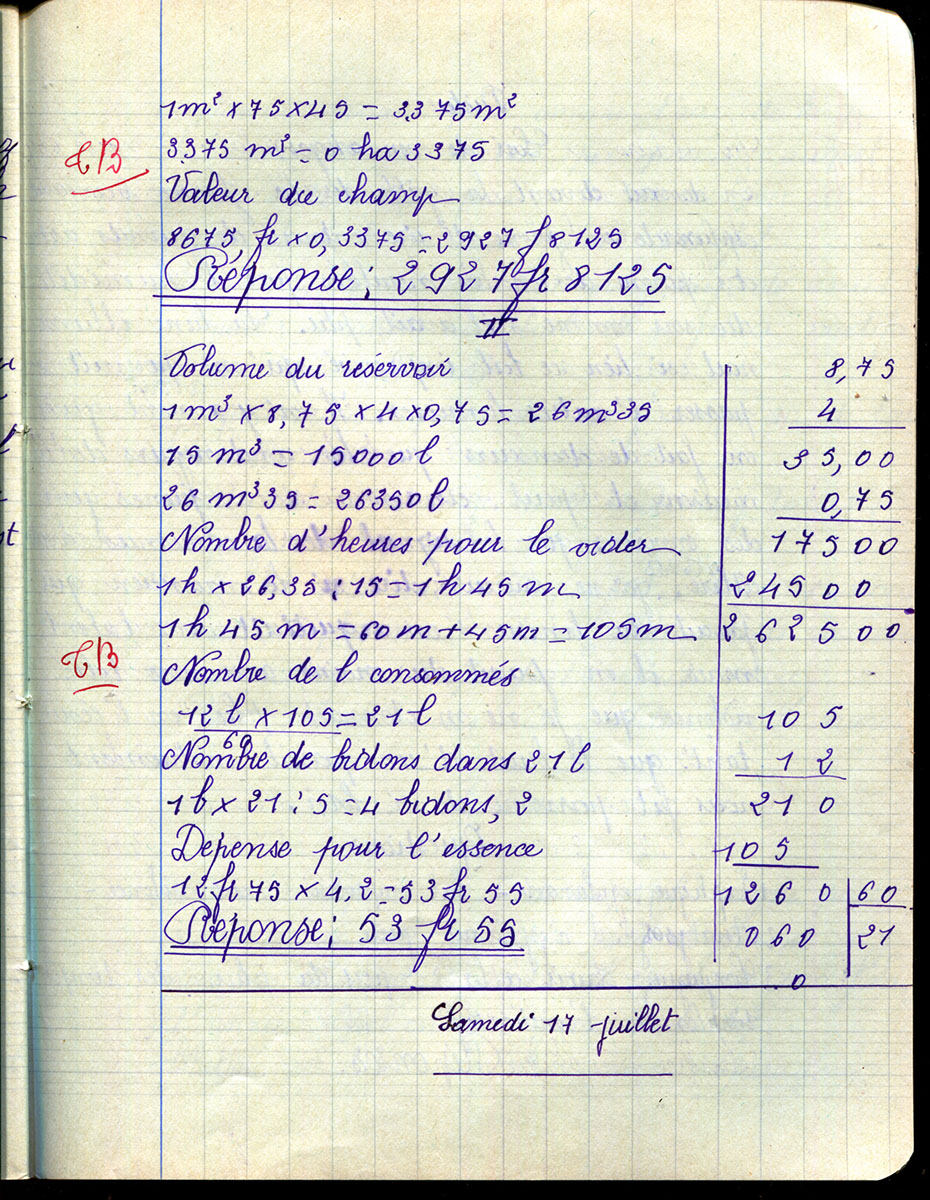 1m² x 75 x 45 = 3375m²
TB
3375 m² = 0 ha 3375
Valeur du champ
8675 fr x 0,3375 = 2927 f 8125
Réponse : 2927 fr 8125
II
Volume du réservoir
1m³ x 8,75 x 4 x 0,75 = 26m³35
15 m³ = 15000l
26 m³35 = 26350l
Nombre d'heures pour le vider
1h x 26,35 : 15 = 1h 45 m
1h 45 m = 60m + 45m = 105m
TB
Nombre de l consommés
12l x 105 = 21l
60
Nombre de bidons dans 21l
1b x 21 : 5 = 4 bidons, 2
Dépense pour l'essence
12fr75 x 4,2 = 53 fr 55
Réponse : 53 fr 55
8,75
4
35,00
0,75
17500
24500
262500
105
12
210
105
1260 60
060 21
0
Samedi 17 juillet